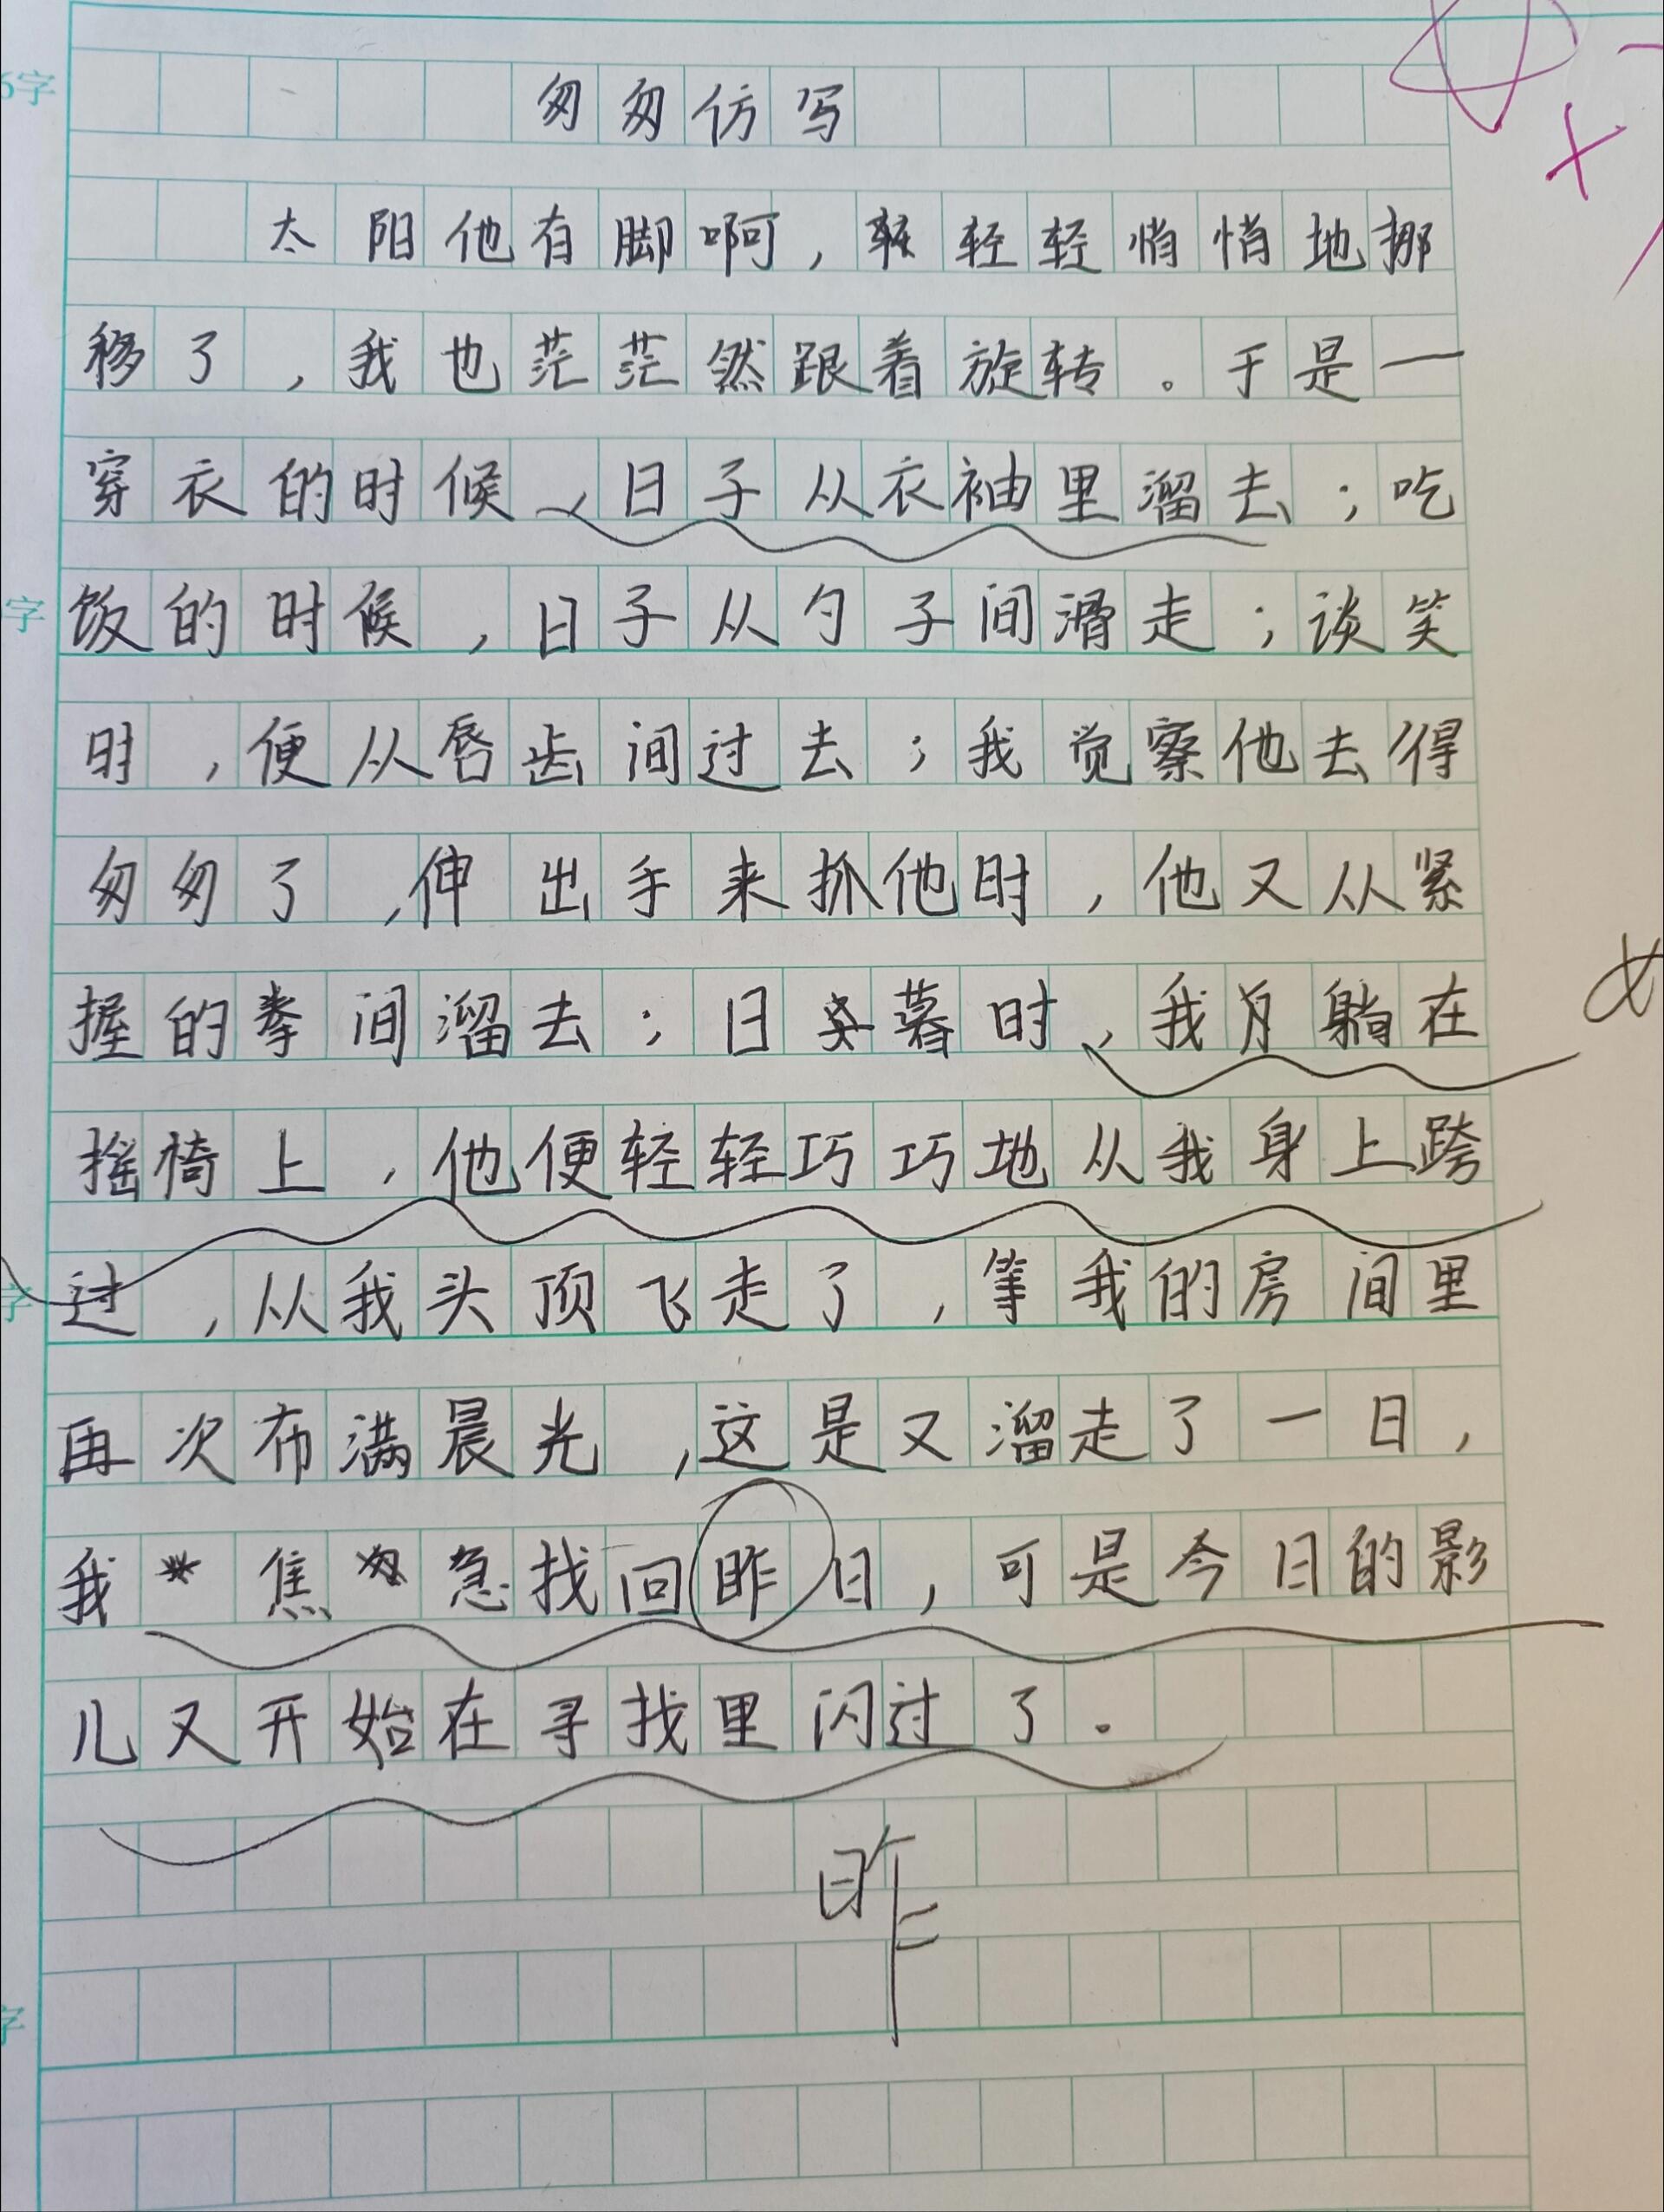 6字
匆匆仿写
太阳他有脚啊，轻轻悄悄地挪
移了，我也茫茫然跟着旋转。于是一
穿衣的时候，日子从衣袖里溜去；吃
字
饭的时候，日子从勺子间滑走；谈笑
时，便从唇齿间过去；我觉察他去得
匆匆了，伸出手来抓他时，他又从紧
握的拳间溜去；日暮时，我躺在
摇椅上，他便轻轻巧巧地从我身上跨
字
过，从我头顶飞走了，等我的房间里
再次布满晨光，这是又溜走了一日，
我焦急找回昨日，可是今日的影
儿又开始在寻找里闪过了。
昨
字